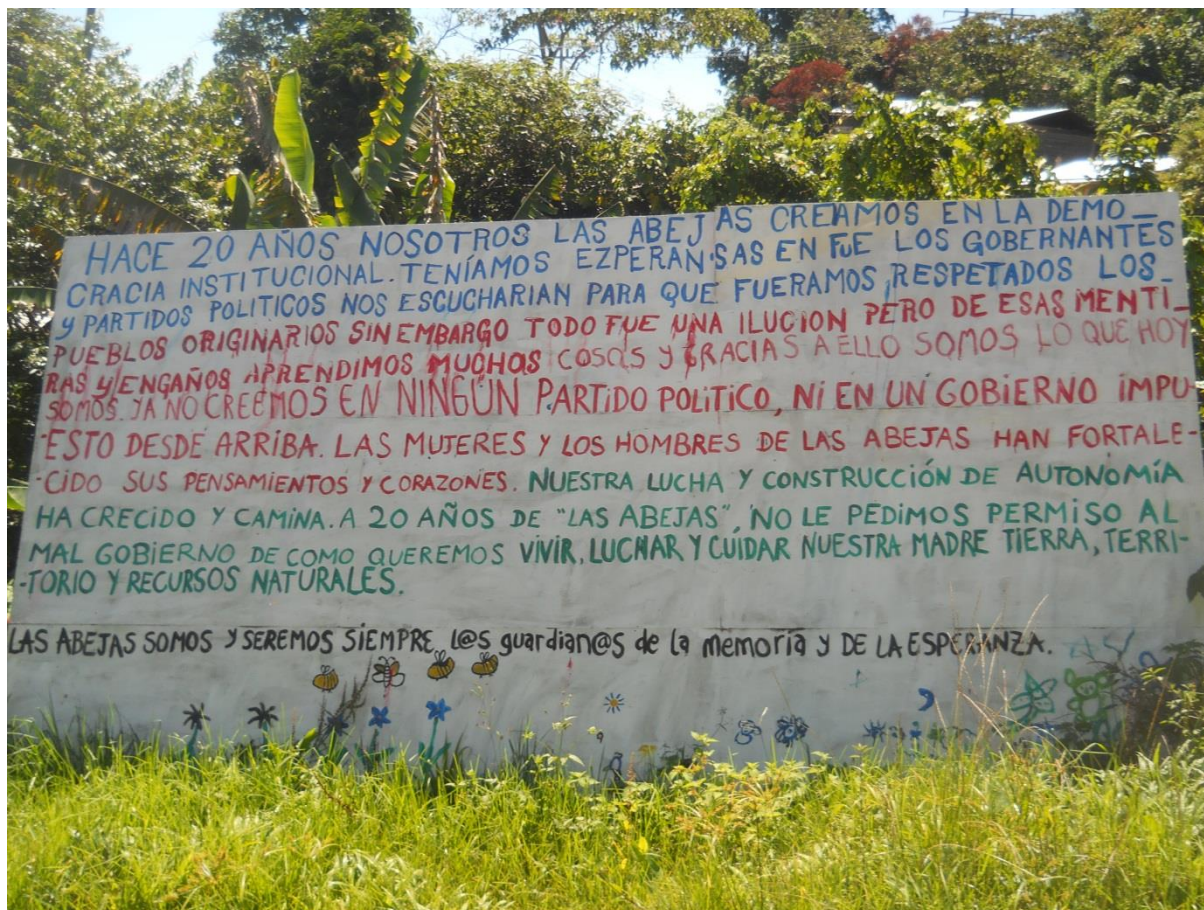 HACE 20 AÑOS NOSOTROS LAS ABEJAS CREIAMOS EN LA DEMO_
CRACIA INSTITUCIONAL. TENÍAMOS EZPERANSAS EN FUE LOS GOBERNANTES
Y PARTIDOS POLITICOS NOS ESCUCHARIAN PARA QUE FUERAMOS RESPETADOS LOS_
PUEBLOS ORIGINARIOS SIN EMBARGO TODO FUE UNA ILUCION PERO DE ESAS MENTI_
RAS Y ENGAÑOS APRENDIMOS MUCHAS COSAS Y GRACIAS A ELLO SOMOS LO QUE HOY
SOMOS. YA NO CREEMOS EN NINGÚN PARTIDO POLITICO, NI EN UN GOBIERNO IMPU-
-ESTO DESDE ARRIBA. LAS MUJERES Y LOS HOMBRES DE LAS ABEJAS HAN FORTALE-
-CIDO SUS PENSAMIENTOS Y CORAZONES. NUESTRA LUCHA Y CONSTRUCCIÓN DE AUTONOMÍA
HA CRECIDO Y CAMINA. A 20 AÑOS DE "LAS ABEJAS", NO LE PEDIMOS PERMISO AL
MAL GOBIERNO DE COMO QUEREMOS VIVIR, LUCHAR Y CUIDAR NUESTRA MADRE TIERRA, TERRI-
-TORIO Y RECURSOS NATURALES.
LAS ABEJAS SOMOS Y SEREMOS SIEMPRE l@s guardian@s de la memoria y DE LA ESPERANZA.